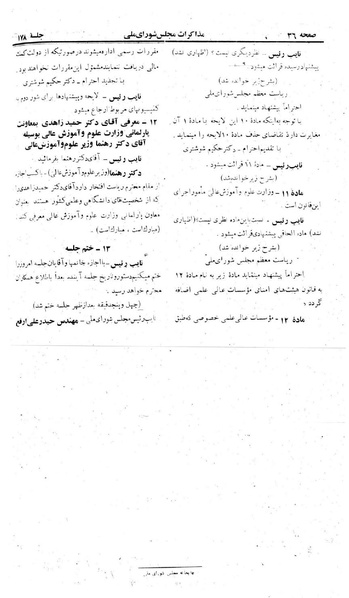 صفحه ۳۶
مذاکرات مجلس شورای ملی
جلسه ۱۷۸
نایب رئیس - نظر دیگری نیست؟ (اظهاری نشد)
پیشنهاد رسیده قرائت میشود.
(بشرح زیر خوانده شد)
ریاست معظم مجلس شورای ملی
احتراماً پیشنهاد مینماید.
با توجه به اینکه مادهٔ ۱۰ این لایحه با مادهٔ ۹ آن
مغایرت دارد تقاضای حذف مادهٔ ۱۰ لایحه را مینماید.
با تقدیم احترام - دکتر حکیم شوشتری
نایب رئیس - مادهٔ ۱۱ قرائت میشود.
(بشرح زیر خوانده شد)
مادهٔ ۱۱ - وزارت علوم و آموزش عالی مأمور اجرای
این قانون است.
نایب رئیس - نسبت باین ماده نظری نیست؟ (اظهاری
نشد) مادهٔ الحاقی پیشنهادی قرائت میشود.
(بشرح زیر خوانده شد)
ریاست معظم مجلس شورای ملی
احتراماً پیشنهاد مینماید مادهٔ زیر به نام مادهٔ ۱۲
به قانون هیئت‌های امنای مؤسسات عالی علمی اضافه
گردد:
مادهٔ ۱۲ - مؤسسات عالی علمی خصوصی که طبق
مقررات رسمی اداره میشوند در صورتیکه از دولت کمک
مالی دریافت ننمایند مشمول این مقررات نخواهند بود.
با تجدید احترام - دکتر حکیم شوشتری
نایب رئیس - لایحه و پیشنهادها برای شور دوم به
کمیسیونهای مربوط ارجاع میشود.
۱۲ - معرفی آقای دکتر حمید زاهدی بمعاونت
پارلمانی وزارت علوم و آموزش عالی بوسیله
آقای دکتر رهنما وزیر علوم و آموزش عالی
نایب رئیس - آقای دکتر رهنما بفرمائید.
دکتر رهنما (وزیر علوم و آموزش عالی) - با کسب اجازه
از مقام معظم ریاست افتخار دارد آقای دکتر حمید زاهدی را
که از شخصیت‌های دانشگاهی و علمی کشور هستند بعنوان
معاون پارلمانی وزارت علوم و آموزش عالی معرفی کند.
(مبارک است، مبارک است).
۱۳ - ختم جلسه
نایب رئیس - با اجازه خانمها و آقایان جلسه امروز را
ختم میکنیم دستور و تاریخ جلسه آینده بعداً باطلاع همکاران
محترم خواهد رسید.
(چهل و پنج دقیقه بعد از ظهر جلسه ختم شد)
نایب رئیس مجلس شورای ملی - مهندس حیدرعلی ارفع
چاپخانه مجلس شورای ملی